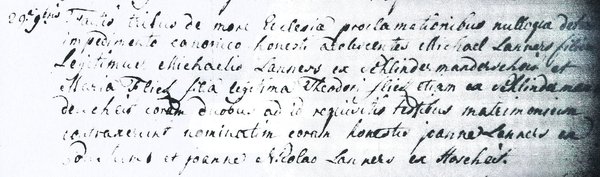 29 9bris Factis tribus de more Ecclesiæ proclamationibus nulloque detecto
impedimento canonico honesti adolescentes Michael Lanners filius
Legitimus Michaelis Lanners ex Schlindermanderscheit et
Maria Flies filia legitima Theodori flies etiam ex Schlinderman
derscheit coram duobus ad id requisitis testibus matrimonium
contraxerunt nominatim coram honestis joanne Lanners ex
et joanne Nicolao Lanners ex Hoscheit.